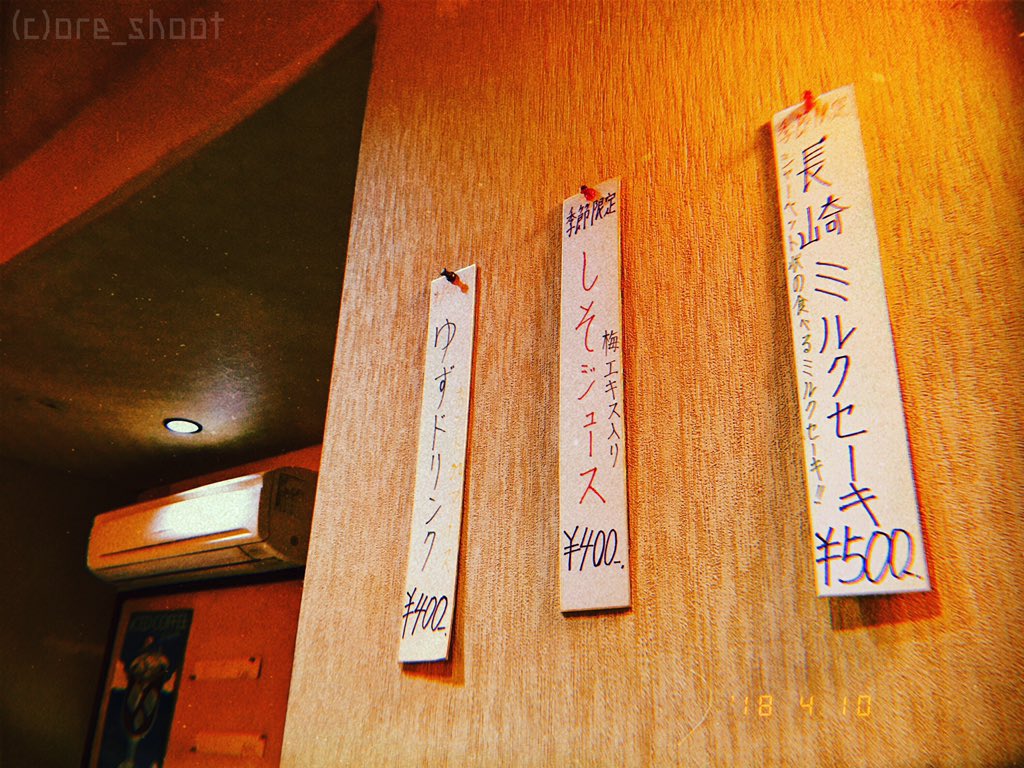 (c)ore_shoot
季節限定
長崎ミルクセーキ
シャーベット状の食べるミルクセーキ!!
¥500-.
季節限定
しそジュース
梅エキス入り
¥400-.
ゆずドリンク
¥400-.
'18 4 10